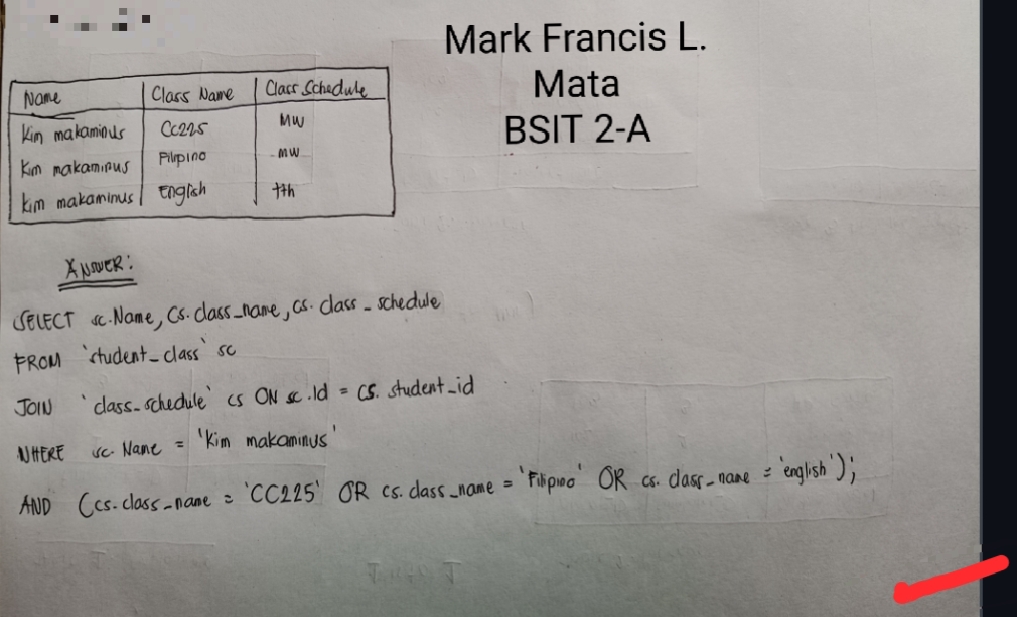 Mark Francis L.
Mata
BSIT 2-A
Name Class Name Class Schedule
Kim makaminus CC225 MW
Kim makaminus Pilipino MW
Kim makaminus English tth
ANSWER:
SELECT sc.Name, Cs.class_name, cs.class_schedule
FROM `student_class` sc
JOIN `class_schedule` cs ON sc.Id = CS.student_id
WHERE sc.Name = 'Kim makaminus'
AND (cs.class_name = 'CC225' OR cs.class_name = 'Filipino' OR cs.class_name = 'english');